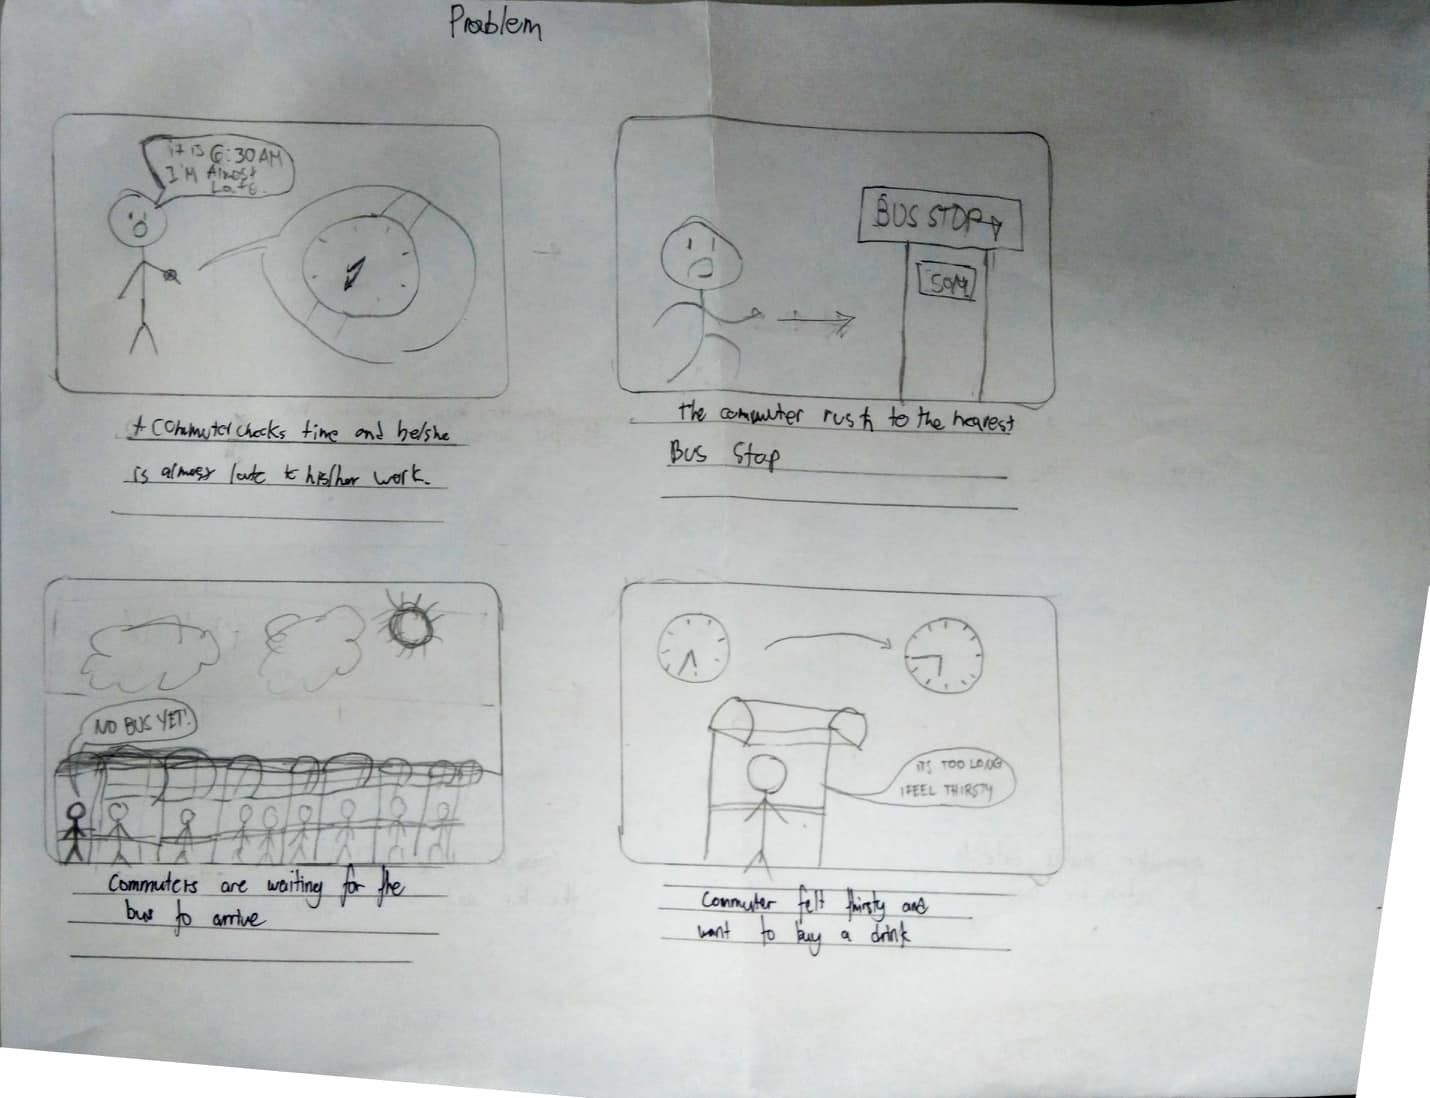 Problem
it is 6:30 AM
I'M Almost
Late.
A commuter checks time and he/she
is almost late to his/her work.
BUS STOP
50M
the commuter rush to the nearest
Bus Stop
NO BUS YET!
Commuters are waiting for the
bus to arrive
ITS TOO LONG
I FEEL THIRSTY
Commuter felt thirsty and
want to buy a drink